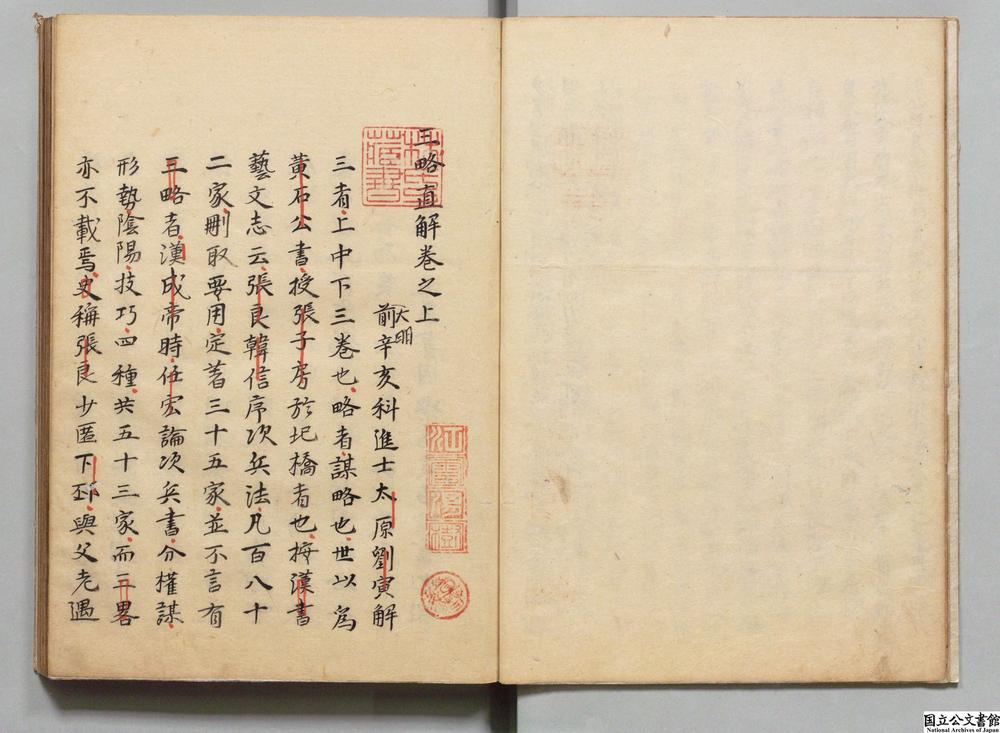 三略直解卷之上
前大明辛亥科進士太原劉寅解
三者上中下三卷也略者謀略也世以爲
黄石公書授張子房於圯橋者也按漢書
藝文志云張良韓信序次兵法凡百八十
二家刪取要用定著三十五家並不言有
三略者漢成帝時任宏論次兵書分權謀
形勢陰陽技巧四種共五十三家而三畧
亦不載焉史稱張良少匿下邳與父老遇
林氏藏書
江雲渭樹
国立公文書館
National Archives of Japan